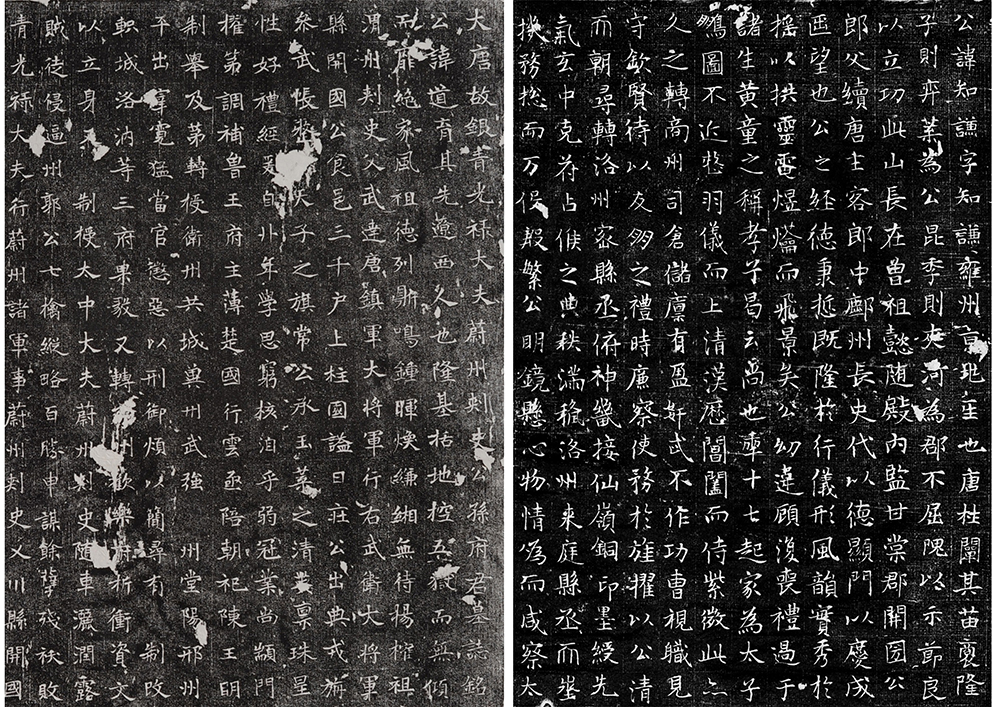 大唐故銀青光禄大夫蔚州刺史公孫府君墓誌銘
公諱道育其先遼西人也隆基枯地控五嶽而無傾
絶家風祖德列鼎鳴鍾暉煥縑緗無待揚榷祖
渭州刺史父武達唐鎮軍大将軍行右武衛大将軍
縣開國公食邑三千户上柱國謚曰莊公出典戎旃
叅武帳 子之旗常公承玉葉之清 稟珠星
性好禮經爰自丱年學思窮核洎乎弱冠業尚顓門
擢第調補魯王府主薄楚國行雲丞陪朝祀陳王明
制舉及第轉授衛州共城 州武強 州堂陽邢州
平出宰寬猛當官懲惡以刑御煩以簡尋有 制改
軹城洛汭等三府果毅又轉 州歡樂府折衝資文
以立身 制授太中大夫蔚州刺史随車灑潤露
賊徒侵逼州郭公七擒縱略百勝申謀餘孽殘祅敗
青光禄大夫行蔚州諸軍事蔚州刺史乂川縣開國
公諱知謙字知謙雍州京 也唐杜闡其苗裔隆
子則弈葉為公昆季則夾河為郡不屈隗以示節良
以立功此山長在曽祖懿随殿内監甘棠郡開國公
郎父續唐主客郎中鄜州長史代以德顯門以慶成
區望也公之經德秉 既隆於行儀形風韻實秀於
摇以拱靈電煜爚而飛景矣公幼違顧復喪禮過于
諸生黄童之稱孝子曷云 也年十七起家為太子
鵬圖不近整羽儀而上清漢歷閶闔而侍紫微此亦
久之轉商州司倉儲廪有盈姧弍不作功曹視職見
守欽賢待以友朋之禮時廉察使務於旌擢以公清
而朝尋轉洛州密縣丞俯神 接仙嶺銅印墨綬先
氣玄中克苻占候之典秩滿 洛州来庭縣丞而坐
機務揔而万俟殷繁公明鏡懸心物情為而咸察太